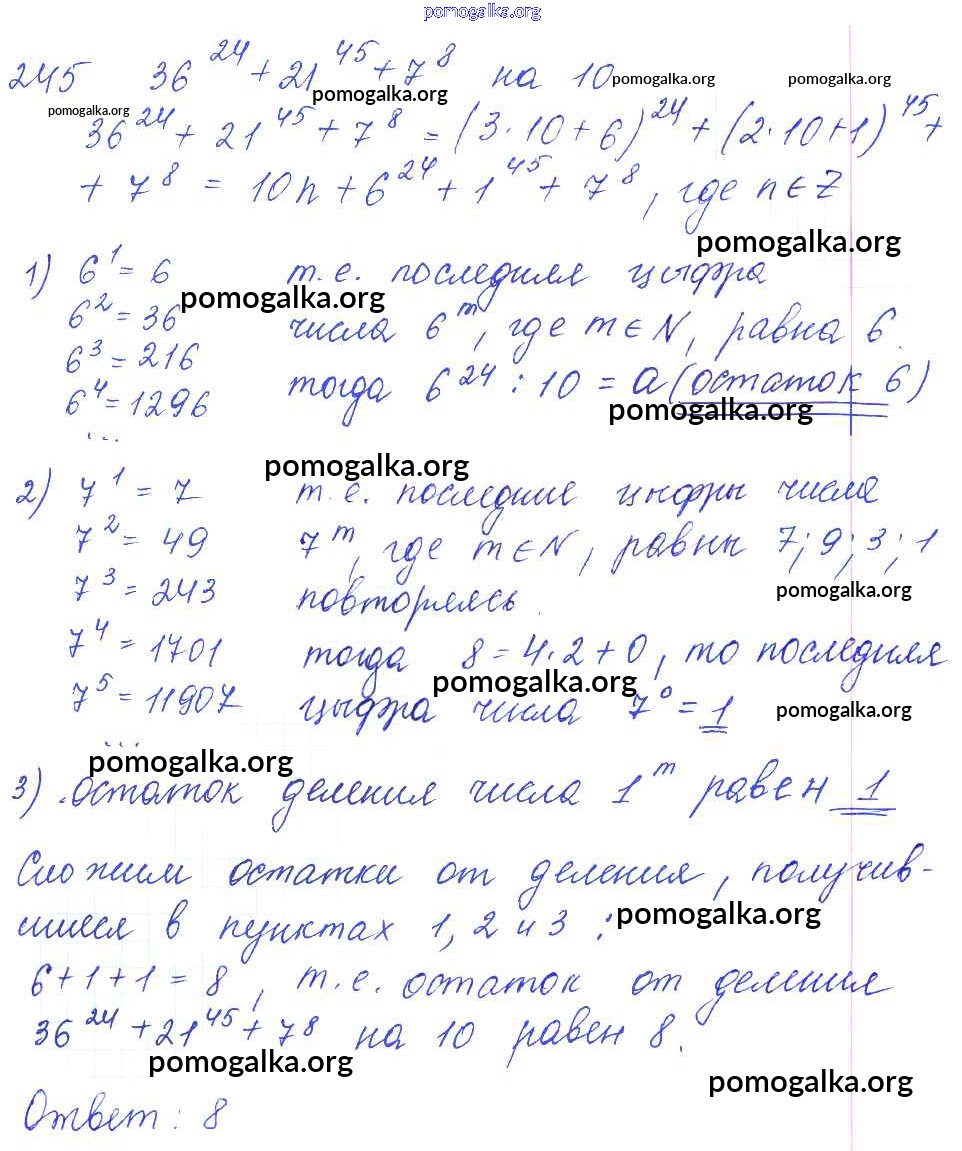 pomogalka.org
245 36^24 + 21^45 + 7^8 на 10 pomogalka.org pomogalka.org
pomogalka.org pomogalka.org
36^24 + 21^45 + 7^8 = (3·10+6)^24 + (2·10+1)^45 +
+ 7^8 = 10n + 6^24 + 1^45 + 7^8, где n∈Z
pomogalka.org
1) 6^1 = 6 т.е. последняя цыфра
pomogalka.org
6^2 = 36 числа 6^m, где m∈N, равна 6.
6^3 = 216
тогда 6^24 : 10 = a (остаток 6)
6^4 = 1296 pomogalka.org
...
pomogalka.org
2) 7^1 = 7 т.е. последние цыфры числа
7^2 = 49 7^m, где m∈N, равны 7; 9; 3; 1
7^3 = 243 повторяясь. pomogalka.org
7^4 = 1701 тогда 8 = 4·2+0, то последняя
pomogalka.org
7^5 = 11907 цыфра числа 7^0 = 1 pomogalka.org
...
pomogalka.org
3) остаток деления числа 1^m равен 1
Сложим остатки от деления, получив-
шиеся в пунктах 1, 2 и 3: pomogalka.org
6+1+1 = 8, т.е. остаток от деления
36^24 + 21^45 + 7^8 на 10 равен 8.
pomogalka.org
pomogalka.org
Ответ: 8